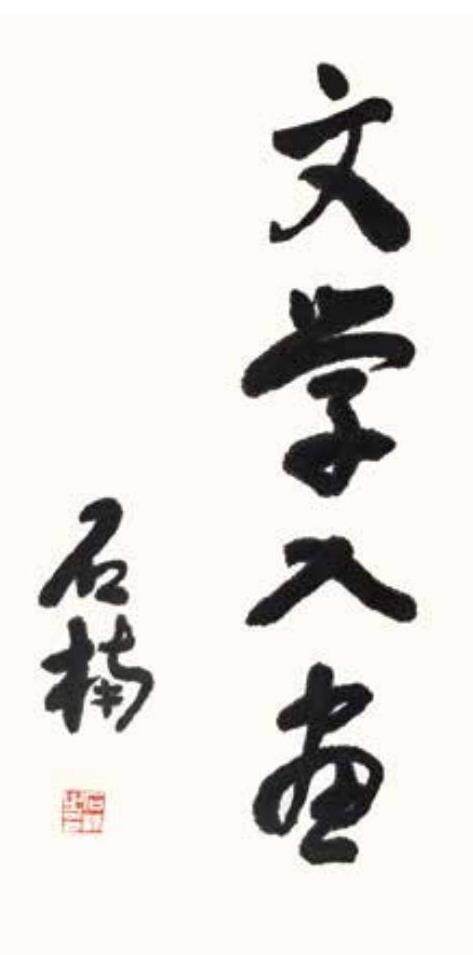 文学入画
石楠